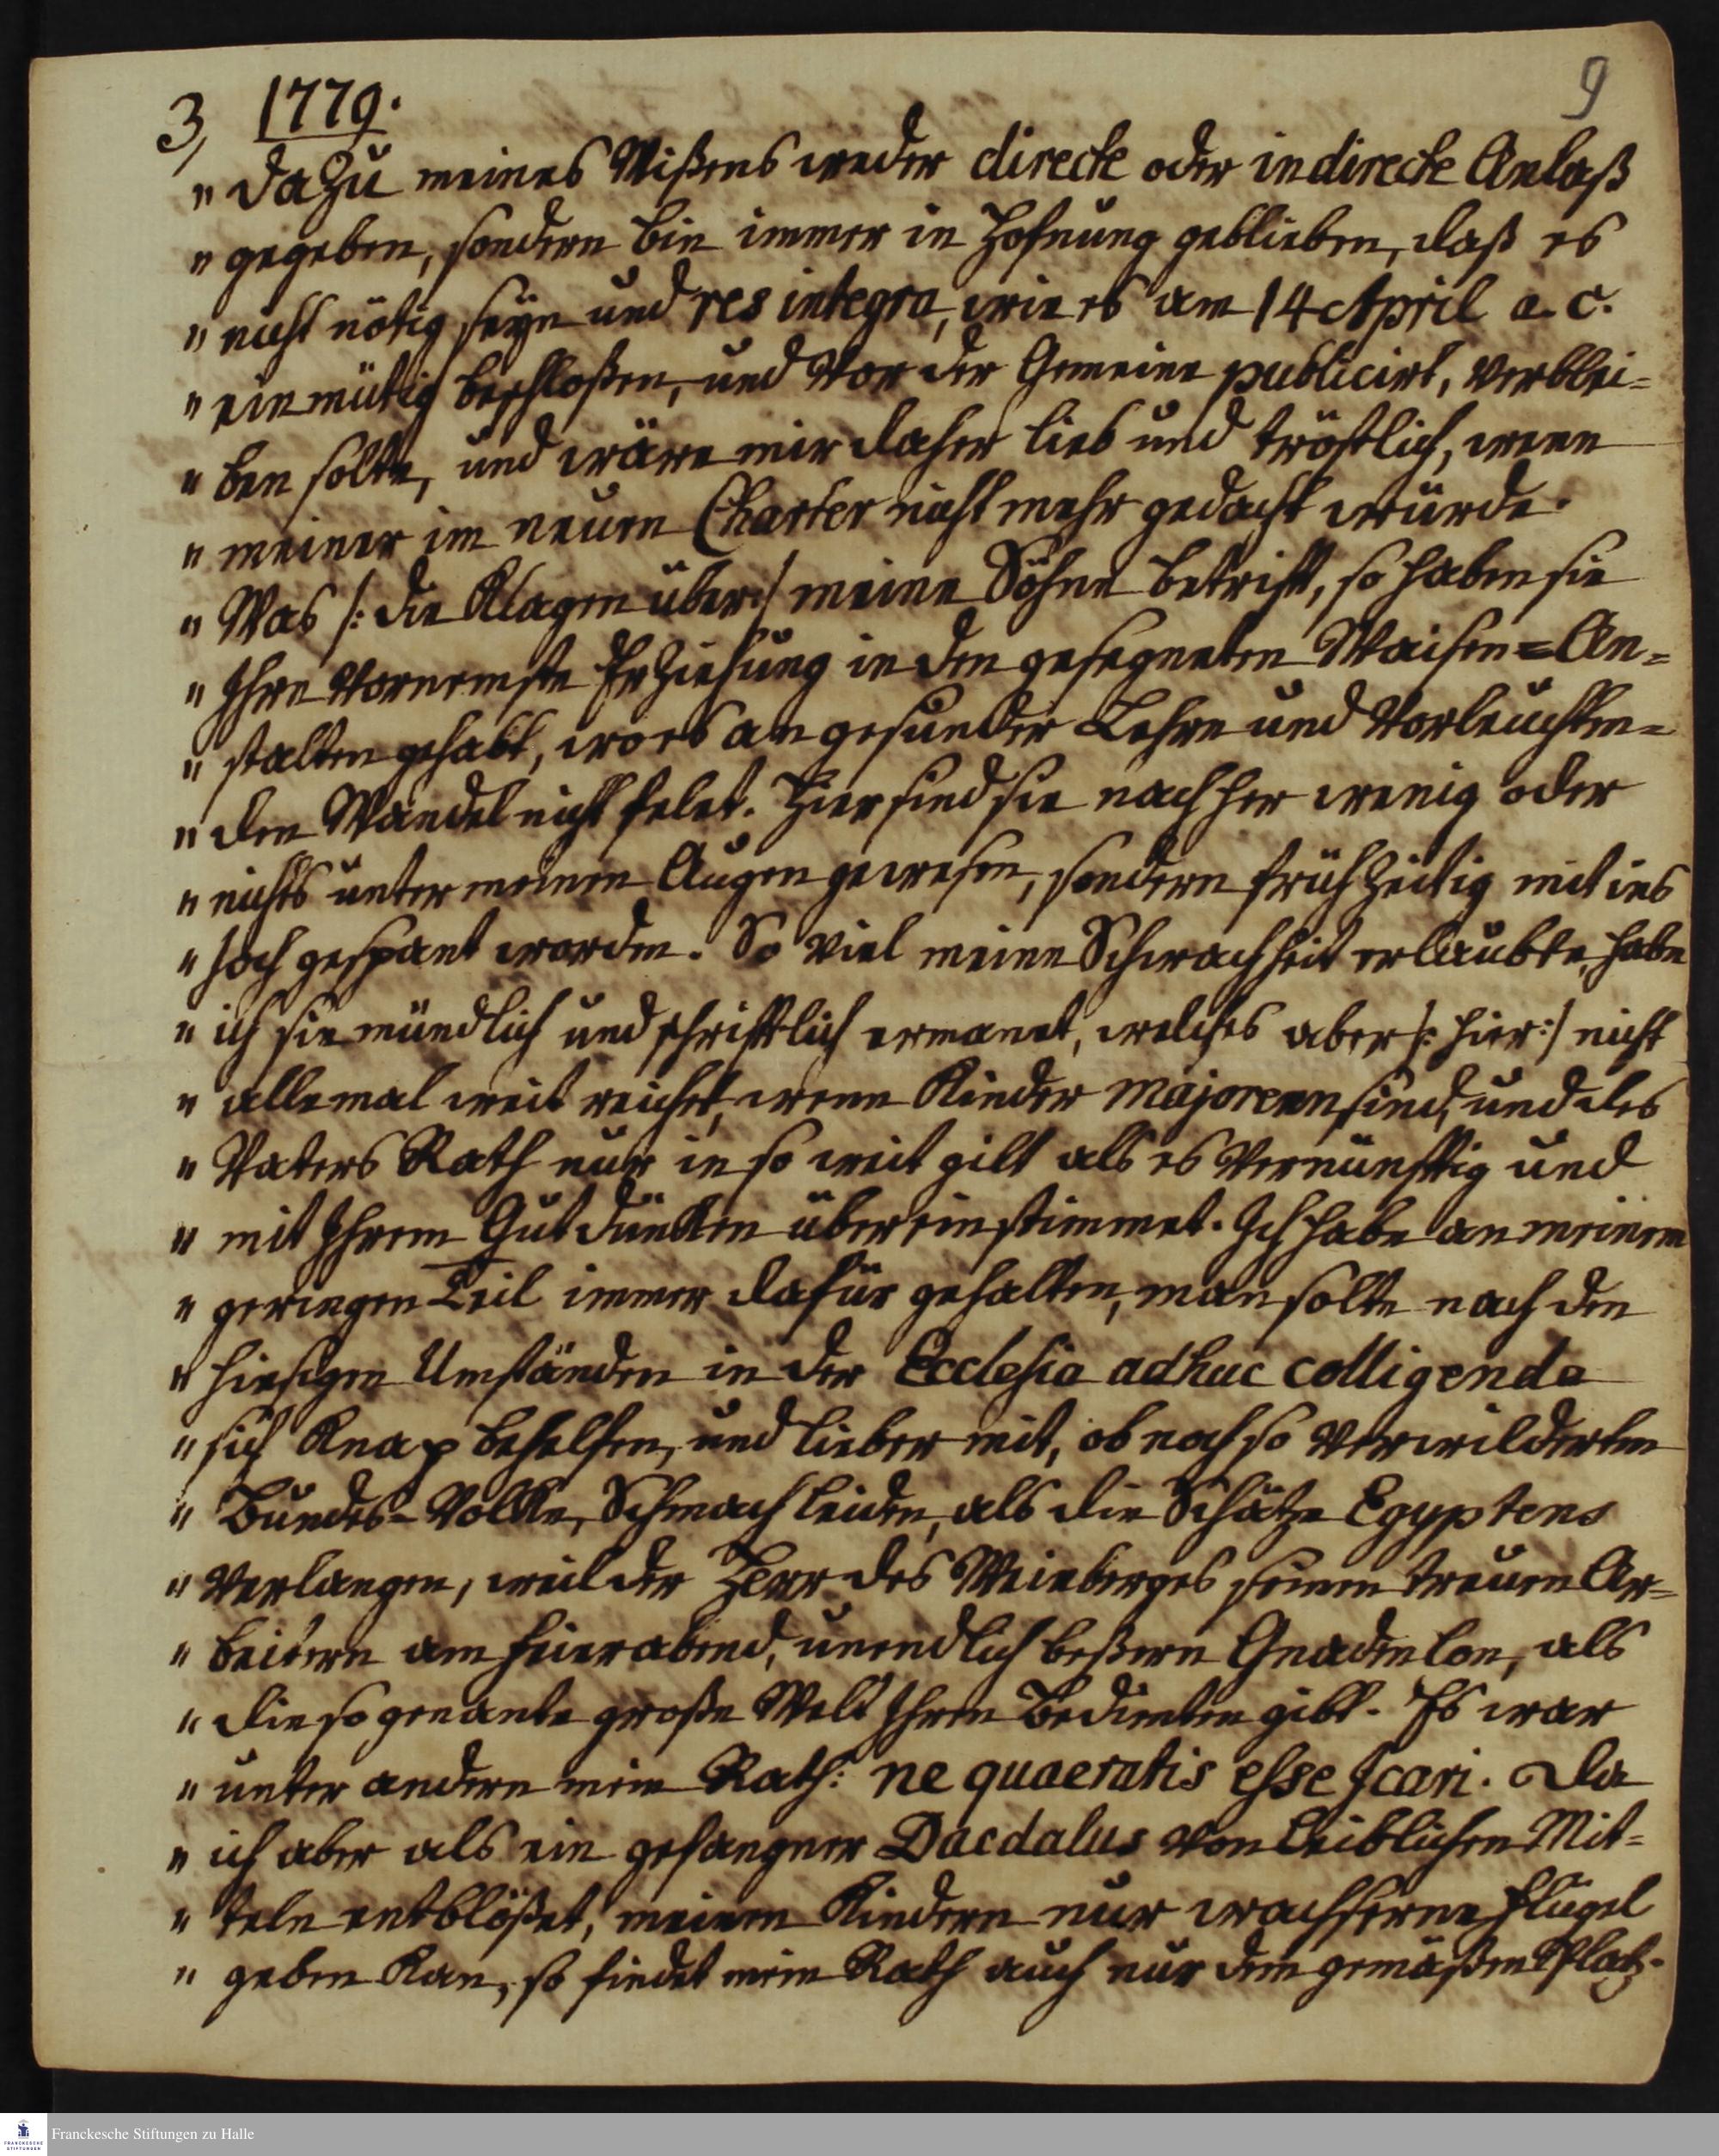 3, 1779. 9
„ dazu meines Wißens weder directe oder indirecte Anlaß
„ gegeben, sondern bin immer in Hofnung geblieben, daß es
„ nicht nötig seyn und res integra, wie es am 14 April a. c.
„ einmütig beschloßen, und vor der Gemeine publicirt, verblei=
„ ben solte, und wäre mir daher lieb und tröstlich, wenn
„ meiner im neuen Charter nicht mehr gedacht würde.
„ Was /: die Klagen über :/ meine Söhne betrift, so haben sie
„ Ihre vornemste Erziehung in den gesegneten Waisen=An=
„ stalten gehabt, wo es an gesunder Lehre und Vorleuchten=
„ den Wandel nicht felet. Hier sind sie nachher wenig oder
„ nichts unter meinen Augen gewesen, sondern früh Zeitig mit ins
„ Joch gespant worden. So viel meine Schwachheit erlaubte, habe
„ ich sie mündlich und schrifftlich ermanet, welches aber /: hier :/ nicht
„ allemal weit reichet, wenn Kinder majorenn sind, und des
„ Vaters Rath nur in so weit gilt als es vernünfftig und
„ mit Ihrem Gutdünken übereinstimmet. Ich habe an meinem
„ geringen Teil immer dafür gehalten, man solte nach den
„ hiesigen Umständen in der Ecclesia adhuc colligenda
„ sich knap behelfen, und lieber mit, ob noch so verwilderten
„ Bundes=Volke, Schmach leiden, als die Schätze Egyptens
„ verlangen, weil der Herr des Weinberges seinen treuen Ar=
„ beitern am feierabend, unendlich beßern Gnadenlon, als
„ die so genante große Welt Ihren Bedienten gibt. Es war
„ unter andern mein Rath: ne quaeratis esse Icari. Da
„ ich aber als ein gefangner Daedalus von leiblichen Mit=
„ teln entblößet, meinen Kindern nur wachserne flügel
„ geben kan, so findet mein Rath auch nur dem gemäßen Platz.
Franckesche Stiftungen zu Halle